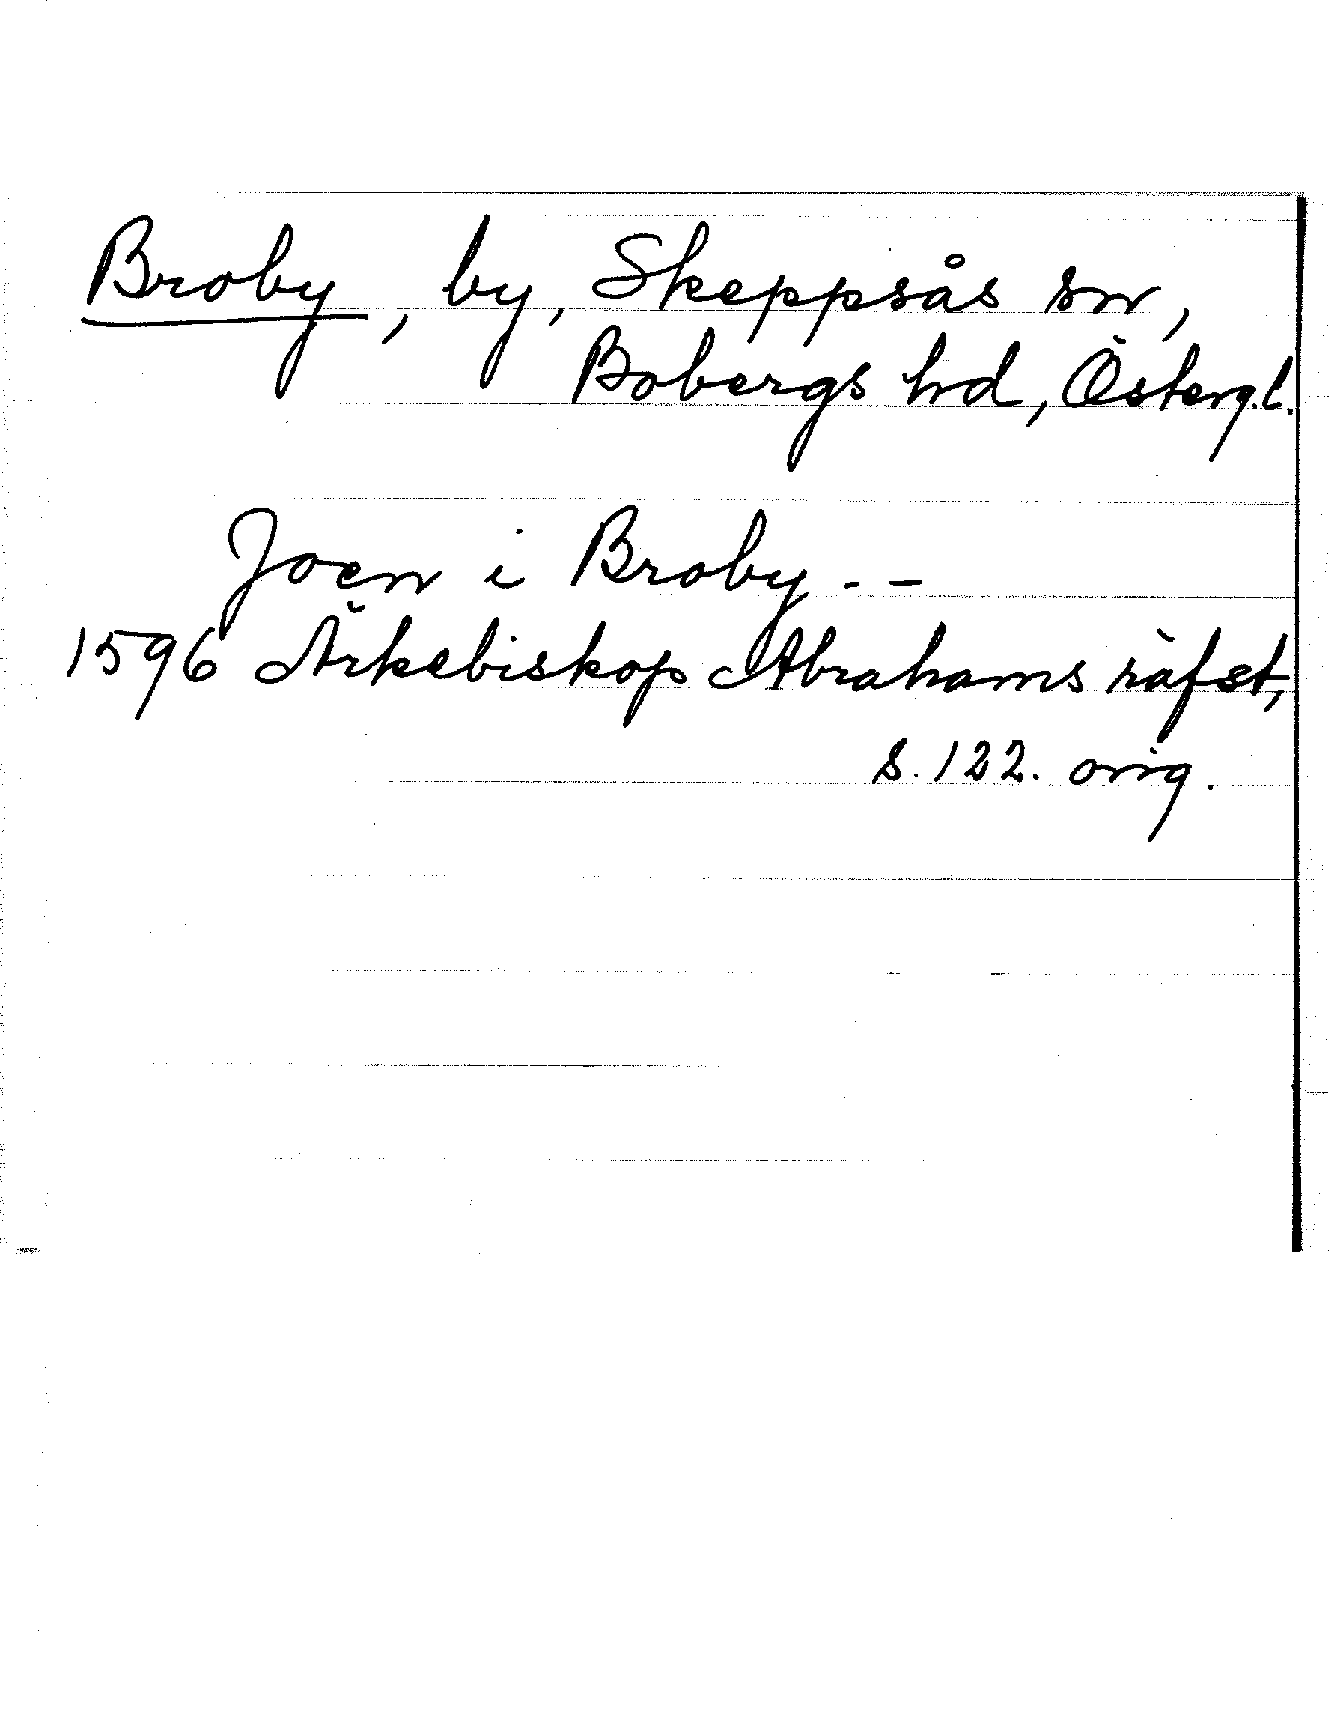 Broby, by, Skeppsås sn,
Bobergs hd, Österg.l.
Joen i Broby - -
1596 Ärkebiskop Abrahams räfst,
s. 122. orig.